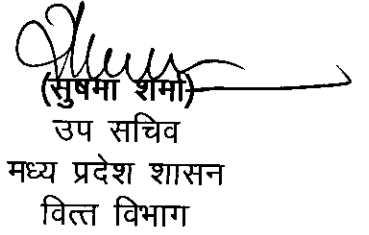 (सुषमा शर्मा)
उप सचिव
मध्य प्रदेश शासन
वित्त विभाग